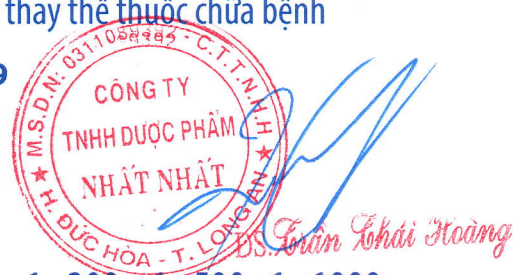 thay thế thuốc chữa bệnh
9
M.S.D.N: - C.T.T.N.H.H
CÔNG TY
TNHH DƯỢC PHẨM
NHẤT NHẤT
H. ĐỨC HÒA - T. LONG AN
DS. Trần Khái Hoàng